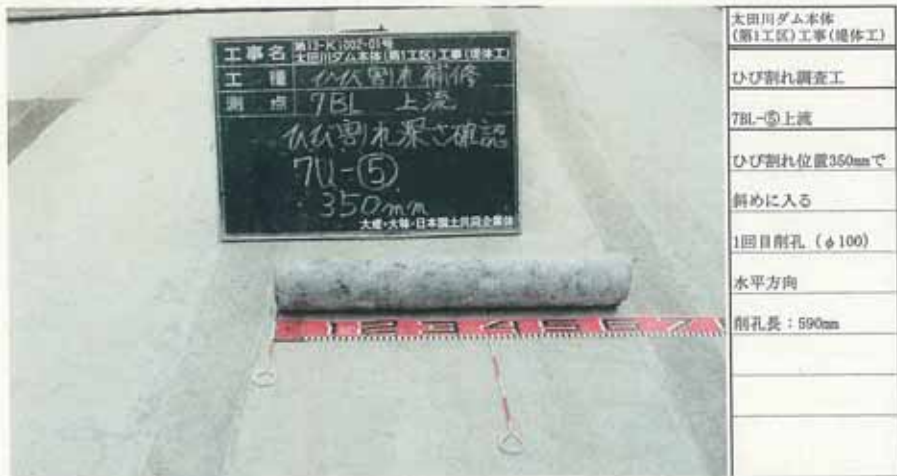 工事名 第13-K1002-01号
太田川ダム本体(第1工区)工事(堤体工)
工種 ひび割れ補修
測点 7BL 上流
ひび割れ深さ確認
7U-⑤
350mm
大成・大林・日本国土共同企業体
1 2 3 4 5 6 7
太田川ダム本体
(第1工区)工事(堤体工)
ひび割れ調査工
7BL-⑤上流
ひび割れ位置350mmで
斜めに入る
1回目削孔(φ100)
水平方向
削孔長:590mm